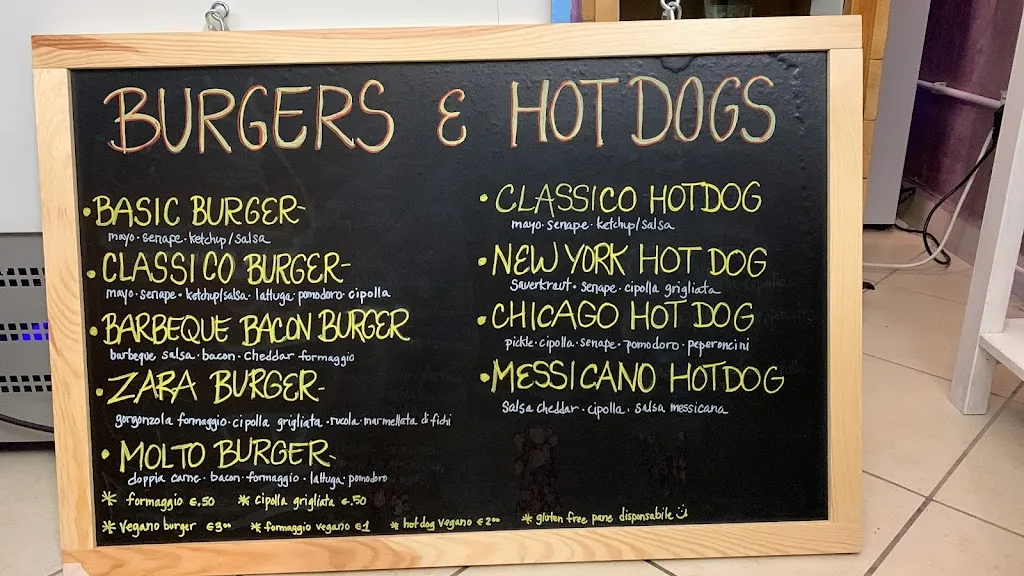 BURGERS & HOT DOGS
• BASIC BURGER-
mayo · senape · ketchup/salsa
• CLASSICO BURGER-
mayo · senape · ketchup/salsa · lattuga · pomodoro · cipolla
• BARBEQUE BACON BURGER
barbeque salsa · bacon · cheddar formaggio
• ZARA BURGER-
gorgonzola formaggio · cipolla grigliata · rucola · marmellata di fichi
• MOLTO BURGER-
doppia carne · bacon · formaggio · lattuga · pomodoro
• CLASSICO HOTDOG
mayo · senape · ketchup/salsa
• NEW YORK HOT DOG
Sauerkraut · senape · cipolla grigliata
• CHICAGO HOT DOG
pickle · cipolla · senape · pomodoro · peperoncini
• MESSICANO HOTDOG
Salsa cheddar · cipolla · salsa messicana
* formaggio €.50 * cipolla grigliata €.50
* Vegano burger €3.00 * formaggio vegano €1 * hot dog vegano €2.00 * gluten free pane disponsabile